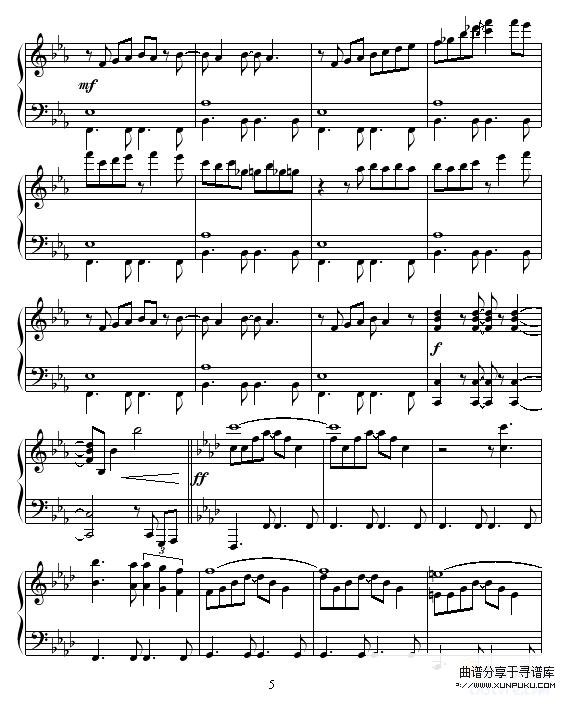 mf
f
ff
3
3
5
曲谱分享于寻谱库
WWW.XUNPUKU.COM